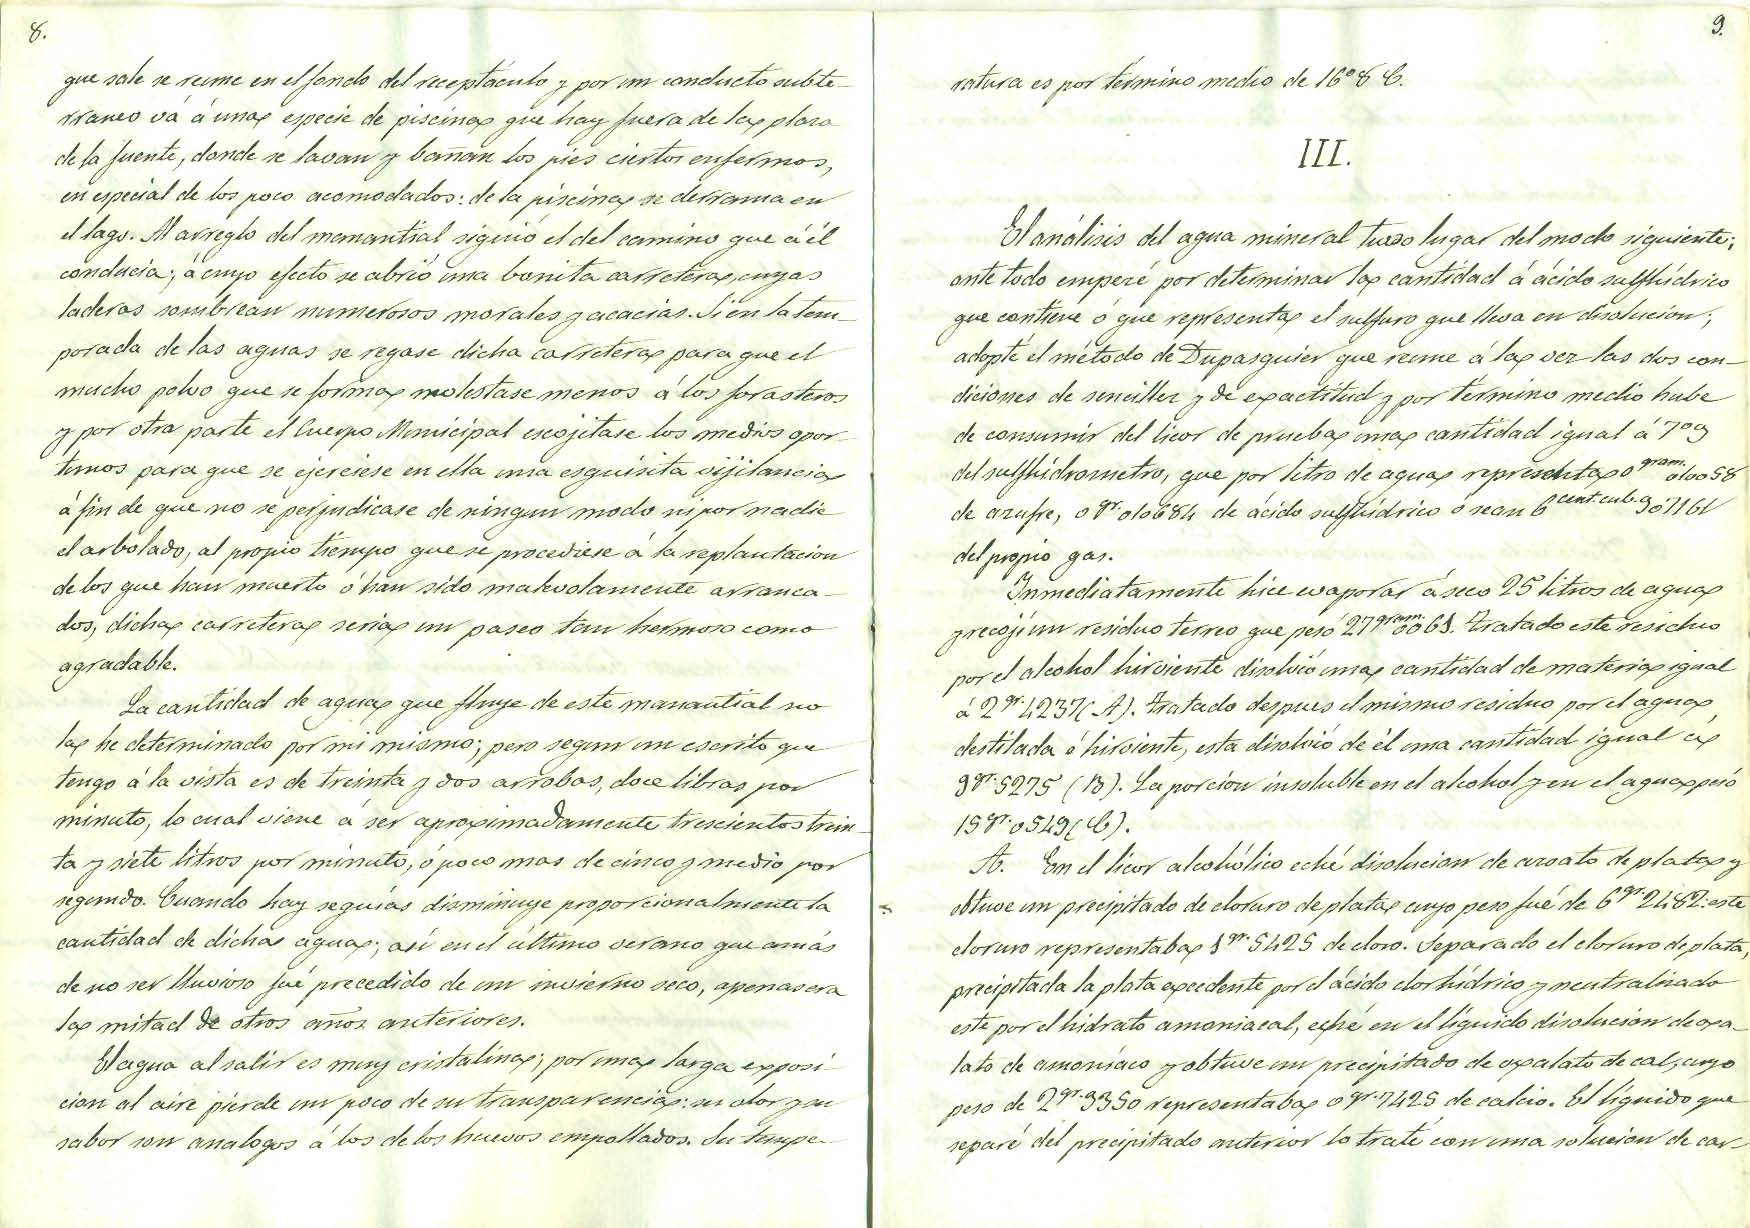 8.
que sale se reune en el fondo del receptáculo y por un conducto subte-
rraneo vá á una especie de piscina que hay fuera de la plaza
de la fuente, donde se lavan y bañan los pies ciertos enfermos,
en especial de los poco acomodados: de la piscina se derrama en
el lago. Al arreglo del manantial siguió el del camino que á él
conducia; á cuyo efecto se abrió una bonita carretera, cuyas
laderas sombrean numerosos morales y acacias. Si en la tem-
porada de las aguas se regase dicha carretera para que el
mucho polvo que se forma molestase menos á los forasteros
y por otra parte el Cuerpo Municipal escojitase los medios opor-
tunos para que se ejerciese en ella una esquisita vijilancia
á fin de que no se perjudicase de ningun modo ni por nadie
el arbolado, al propio tiempo que se procediese á la replantacion
de los que han muerto ó han sido malevolamente arranca-
dos, dicha carretera seria un paseo tan hermoso como
agradable.
La cantidad de agua que fluye de este manantial no
la he determinado por mi mismo; pero segun un escrito que
tengo á la vista es de treinta y dos arrobas, doce libras por
minuto, lo cual viene á ser aproximadamente trescientos trein-
ta y siete litros por minuto, ó poco mas de cinco y medio por
segundo. Cuando hay seguias disminuye proporcionalmente la
cantidad de dicha agua; así en el último verano que amás
de no ser lluvioso fué precedido de un invierno seco, apenas era
la mitad de otros años anteriores.
El agua al salir es muy cristalina; por una larga exposi
cion al aire pierde un poco de su transparencia: su olor y su
sabor son analogos á los de los huevos empollados. Su tempe-
9.
ratura es por término medio de 16º 8 C.
III.
El análisis del agua mineral tuvo lugar del modo siguiente;
ante todo empezé por determinar la cantidad á ácido sulfhídrico
que contiene ó que representa el sulfuro que lleva en disolucion;
adopté el método de Dupasquier que reune á la vez las dos con-
diciones de sencillez y de exactitud y por término medio hube
de consumir del licor de prueba una cantidad igual á 7º 9
del sulfhidrometro, que por litro de agua representa 0 gram. 010058
de azufre, 0 gr. 010684 de ácido sulfhídrico ó sean 6 cent. cub. 907161
del propio gas.
Inmediatamente hice evaporar á seco 25 litros de agua
y recojí un residuo terreo que pesó 27 gram. 0061. Tratado este residuo
por el alcohol hirviente disolvió una cantidad de materia igual
á 2 gr. 4237 (A). Tratado despues el mismo residuo por el agua
destilada é hirviente, esta disolvió de él una cantidad igual á
9 gr. 5275 (B). La porcion insoluble en el alcohol y en el agua pesó
15 gr. 0549 (C).
A. En el licor alcohólico eché disolucion de azoato de plata y
obtuve un precipitado de cloruro de plata cuyo peso fué de 6 gr. 2482: este
cloruro representaba 1 gr. 5425 de cloro. Separado el cloruro de plata,
precipitada la plata excedente por el ácido clorhídrico y neutralizado
este por el hidrato amoniacal, eché en el líquido disolucion de oxa-
lato de amoníaco y obtuve un precipitado de oxalato de cal, cuyo
peso de 2 gr. 3350 representaba 0 gr. 7425 de calcio. El líquido que
separé del precipitado anterior lo traté con una solucion de car-